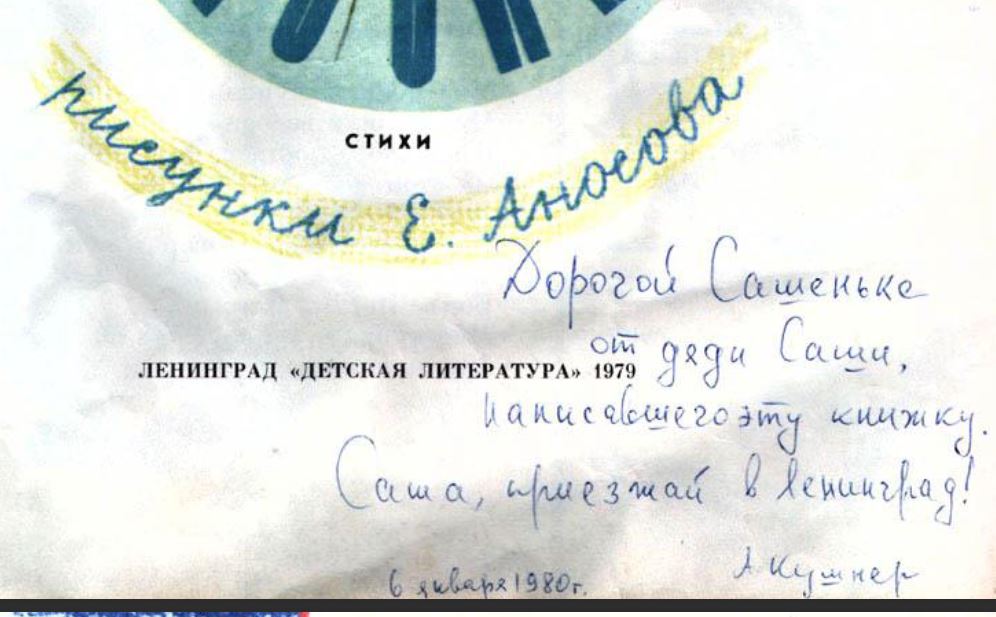 СТИХИ
рисунки Е. Аносова
Дорогой Сашеньке
от дяди Саши,
ЛЕНИНГРАД «ДЕТСКАЯ ЛИТЕРАТУРА» 1979
написавшего эту книжку.
Саша, приезжай в Ленинград!
А. Кушнер
6 января 1980г.